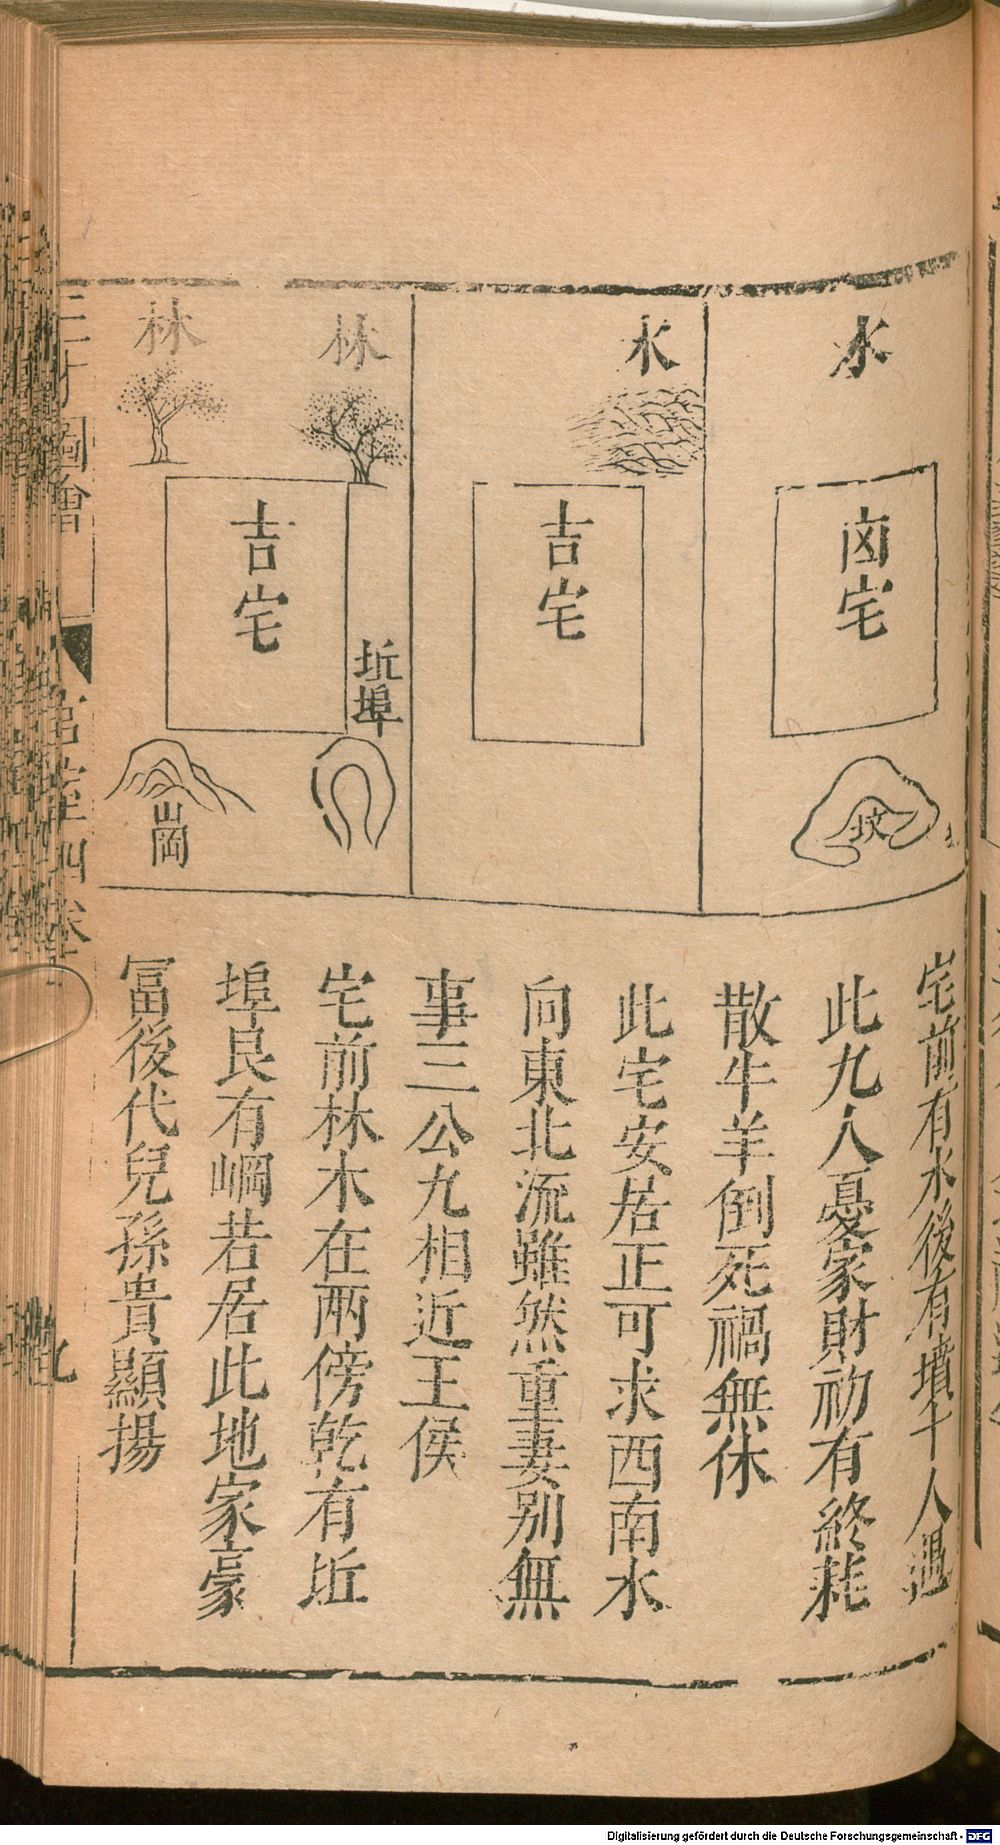 水
凶宅
坟
水
吉宅
林
林
吉宅
坵埠
岡
宅前有水後有墳十人遇
此九人憂家財初有終耗
散牛羊倒死禍無休
此宅安居正可求西南水
向東北流雖然重妻别無
事三公九相近王侯
宅前林木在兩傍乾有坵
埠艮有崗若居此地家豪
冨後代兒孫貴顯揚
三才圖會
宮室四卷
九
Digitalisierung gefördert durch die Deutsche Forschungsgemeinschaft - DFG